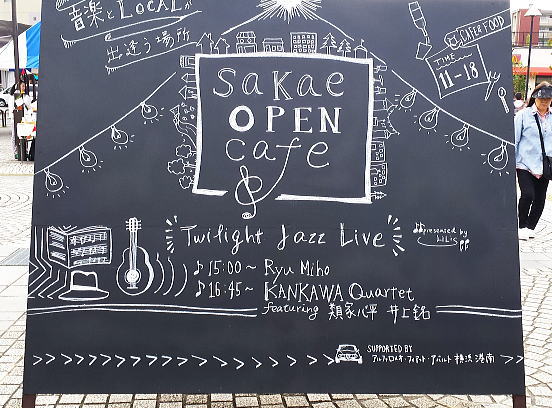 音楽とLOCALが
出逢う場所
CAFE & FOOD
TIME
11-18
SaKae
OPEN
cafe
Twilight Jazz Live
presented by
15:00~ Ryu Miho
16:45~ KANKAWA Quartet
featuring 類家心平 井上銘
SUPPORTED BY
アルファロメオ・フィアット・アバルト 横浜港南